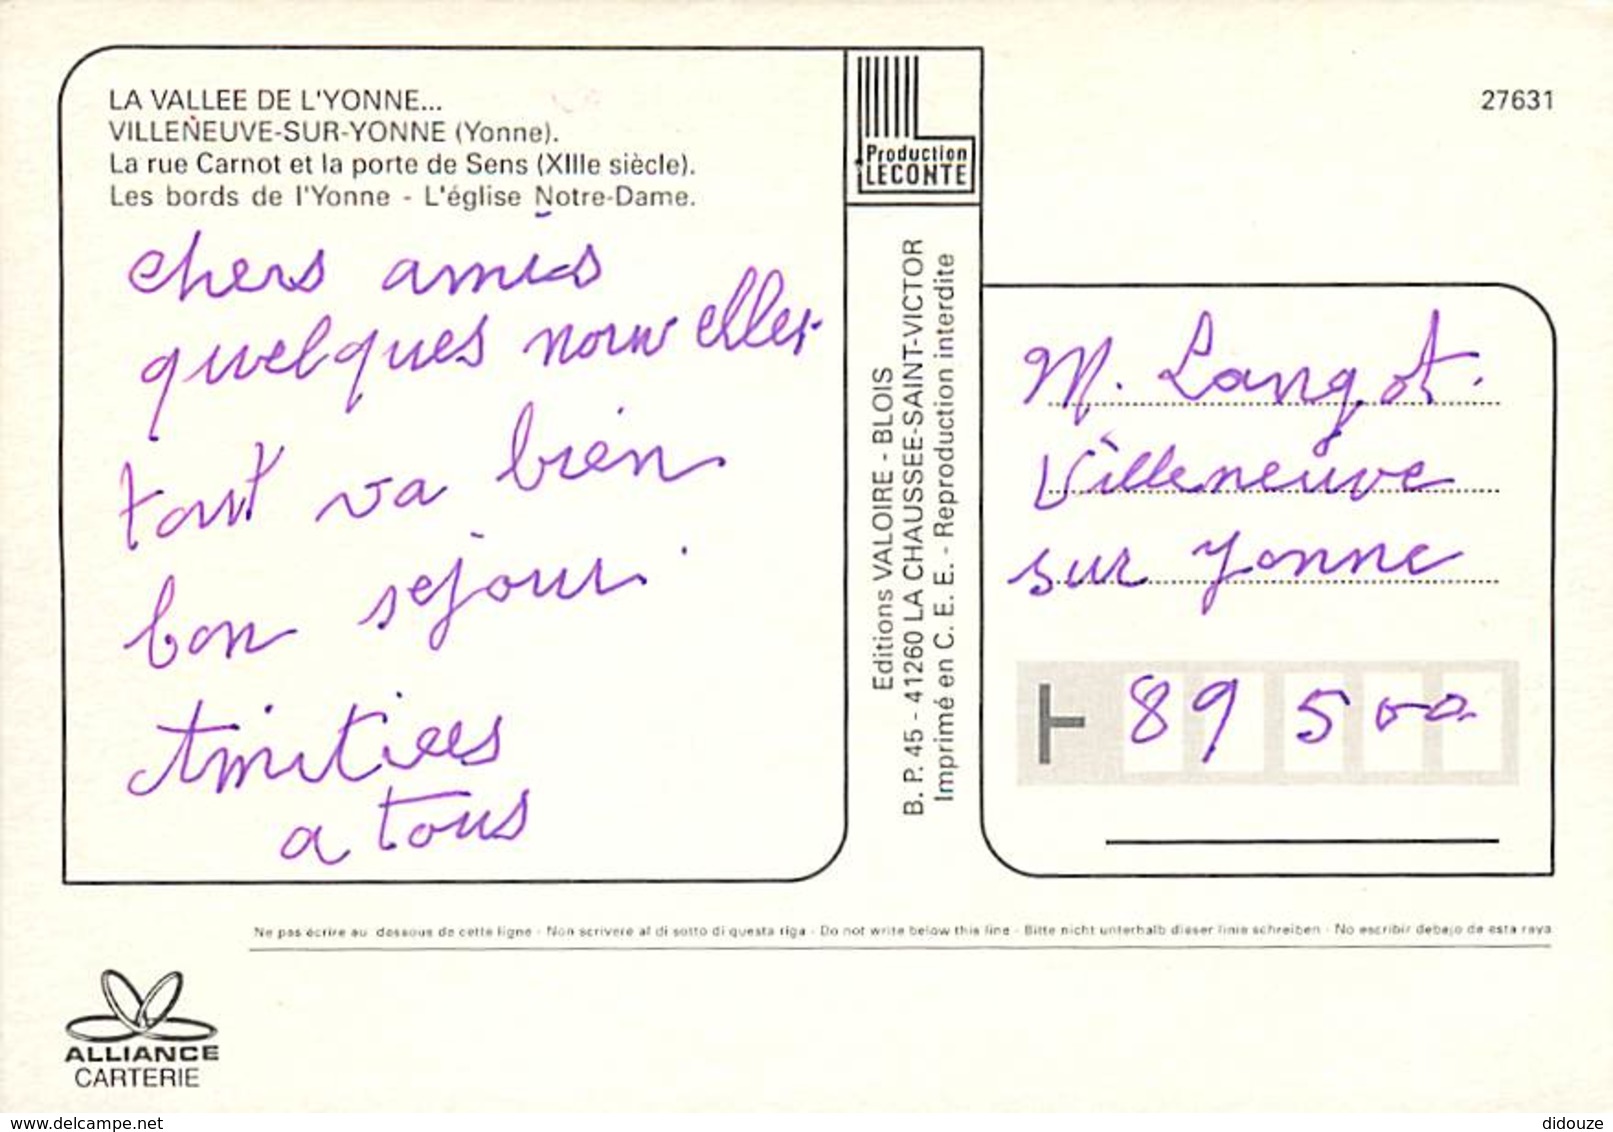 LA VALLEE DE L'YONNE...
VILLENEUVE-SUR-YONNE (Yonne).
La rue Carnot et la porte de Sens (XIIIe siècle).
Les bords de l'Yonne - L'église Notre-Dame.
chers amis
quelques nouvelles
tout va bien
bon sejour.
Amitiees
a tous
Production
LECONTE
Editions VALOIRE - BLOIS
B. P. 45 - 41260 LA CHAUSSEE-SAINT-VICTOR
Imprimé en C. E. E. - Reproduction interdite
27631
M. Langot.
Villeneuve
sur Yonne
89 500
Ne pas écrire au dessous de cette ligne - Non scrivere al di sotto di questa riga - Do not write below this line - Bitte nicht unterhalb dieser linie schreiben - No escribir debajo de esta raya
ALLIANCE
CARTERIE
www.delcampe.net
didouze